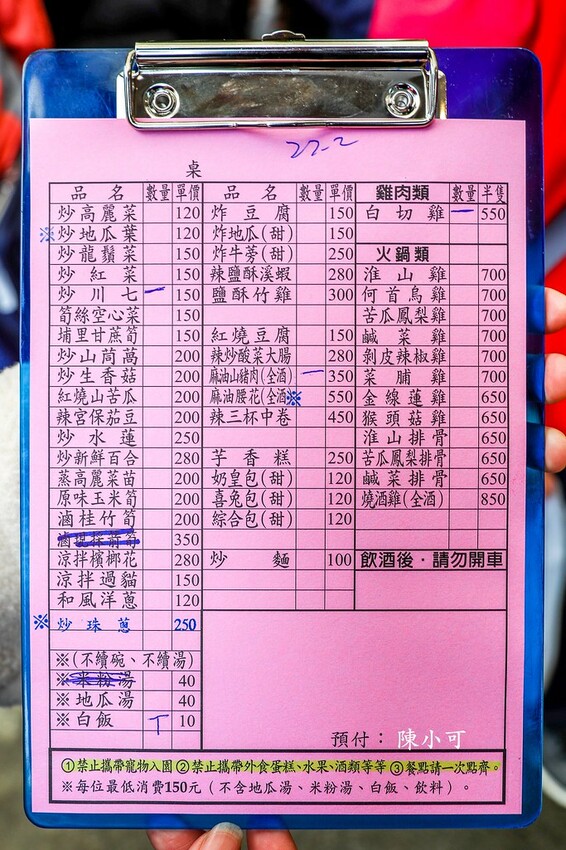 27-2
桌
品名 數量 單價
炒高麗菜 120
※炒地瓜葉 120
炒龍鬚菜 150
炒紅菜 150
炒川七 一 150
筍絲空心菜 150
埔里甘蔗筍 150
炒山茼萵 200
炒生香菇 200
紅燒山苦瓜 200
辣宮保茄豆 200
炒水蓮 250
炒新鮮百合 280
蒸高麗菜苗 200
原味玉米筍 200
滷桂竹筍 200
350
涼拌檳榔花 280
涼拌過貓 150
和風洋蔥 120
※炒珠蔥 250
※(不續碗、不續湯)
※米粉湯 40
※地瓜湯 40
※白飯 丅 10
品名 數量 單價
炸豆腐 150
炸地瓜(甜) 150
炸牛蒡(甜) 250
辣鹽酥溪蝦 280
鹽酥竹雞 300
紅燒豆腐 150
辣炒酸菜大腸 280
麻油山豬肉(全酒) 一 350
麻油腰花(全酒※ 550
辣三杯中卷 450
芋香糕 250
奶皇包(甜) 120
喜兔包(甜) 120
綜合包(甜) 120
炒麵 100
雞肉類 數量 半隻
白切雞 一 550
火鍋類
淮山雞 700
何首烏雞 700
苦瓜鳳梨雞 700
鹹菜雞 700
剝皮辣椒雞 700
菜脯雞 700
金線蓮雞 650
猴頭菇雞 650
淮山排骨 650
苦瓜鳳梨排骨 650
鹹菜排骨 650
燒酒雞(全酒) 850
飲酒後·請勿開車
預付：陳小可
①禁止攜帶寵物入園②禁止攜帶外食蛋糕、水果、酒類等等③餐點請一次點齊。
※每位最低消費150元（不含地瓜湯、米粉湯、白飯、飲料）。